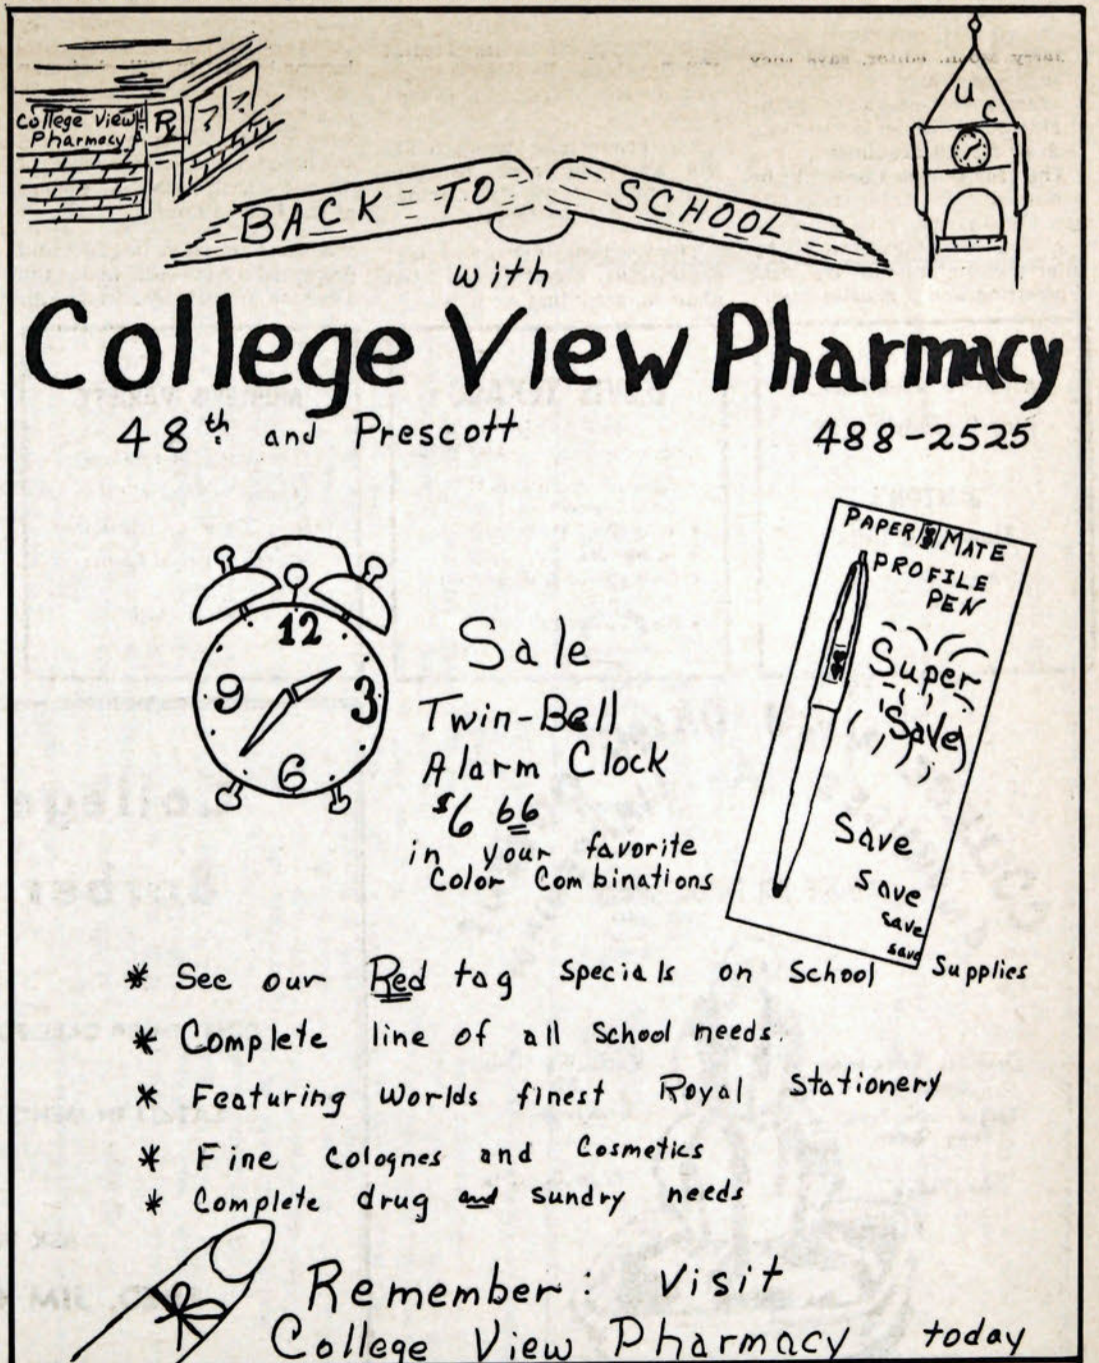 College View
Pharmacy
Rx
U C
BACK TO SCHOOL
with
College View Pharmacy
48th and Prescott
488-2525
12
9 3
6
Sale
Twin-Bell
Alarm Clock
$6 66
in your favorite
Color Combinations
PAPER MATE
PROFILE
PEN
Super
Save
Save
Save
save
save
* See our Red tag specials on School Supplies
* Complete line of all School needs.
* Featuring Worlds finest Royal Stationery
* Fine Colognes and Cosmetics
* Complete drug and sundry needs
Remember: Visit
College View Pharmacy today